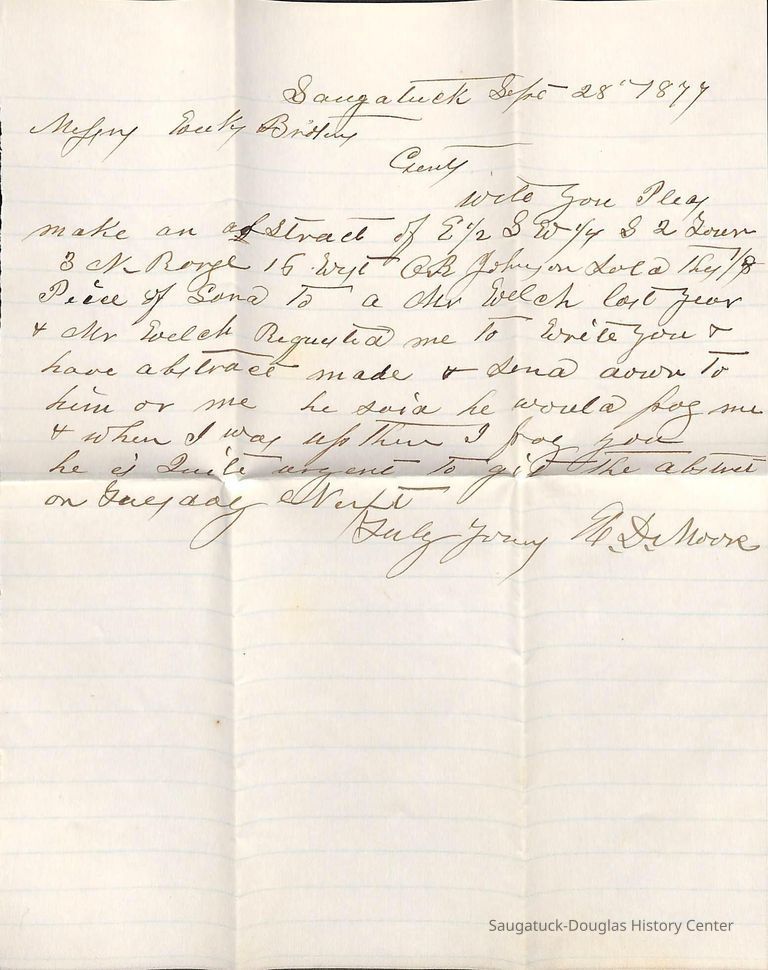 Saugatuck Sept 28" 1877
Messrs Brothers
Gents
Will You Pleas
make an abstract of E 1/2 S W 1/4 S 2 Town
3 N Range 16 West O R Johnson Sold this 1/8
Peice of Land To a Mr Welch last year
& Mr Welch Requested me to Write you &
have abstract made & Send down To
him or me he said he would pay me
& when I was up there I pay you
he is Quite urgent to git the abstract
on Tuesday Next
Truly Yours H. D. Moore
Saugatuck-Douglas History Center